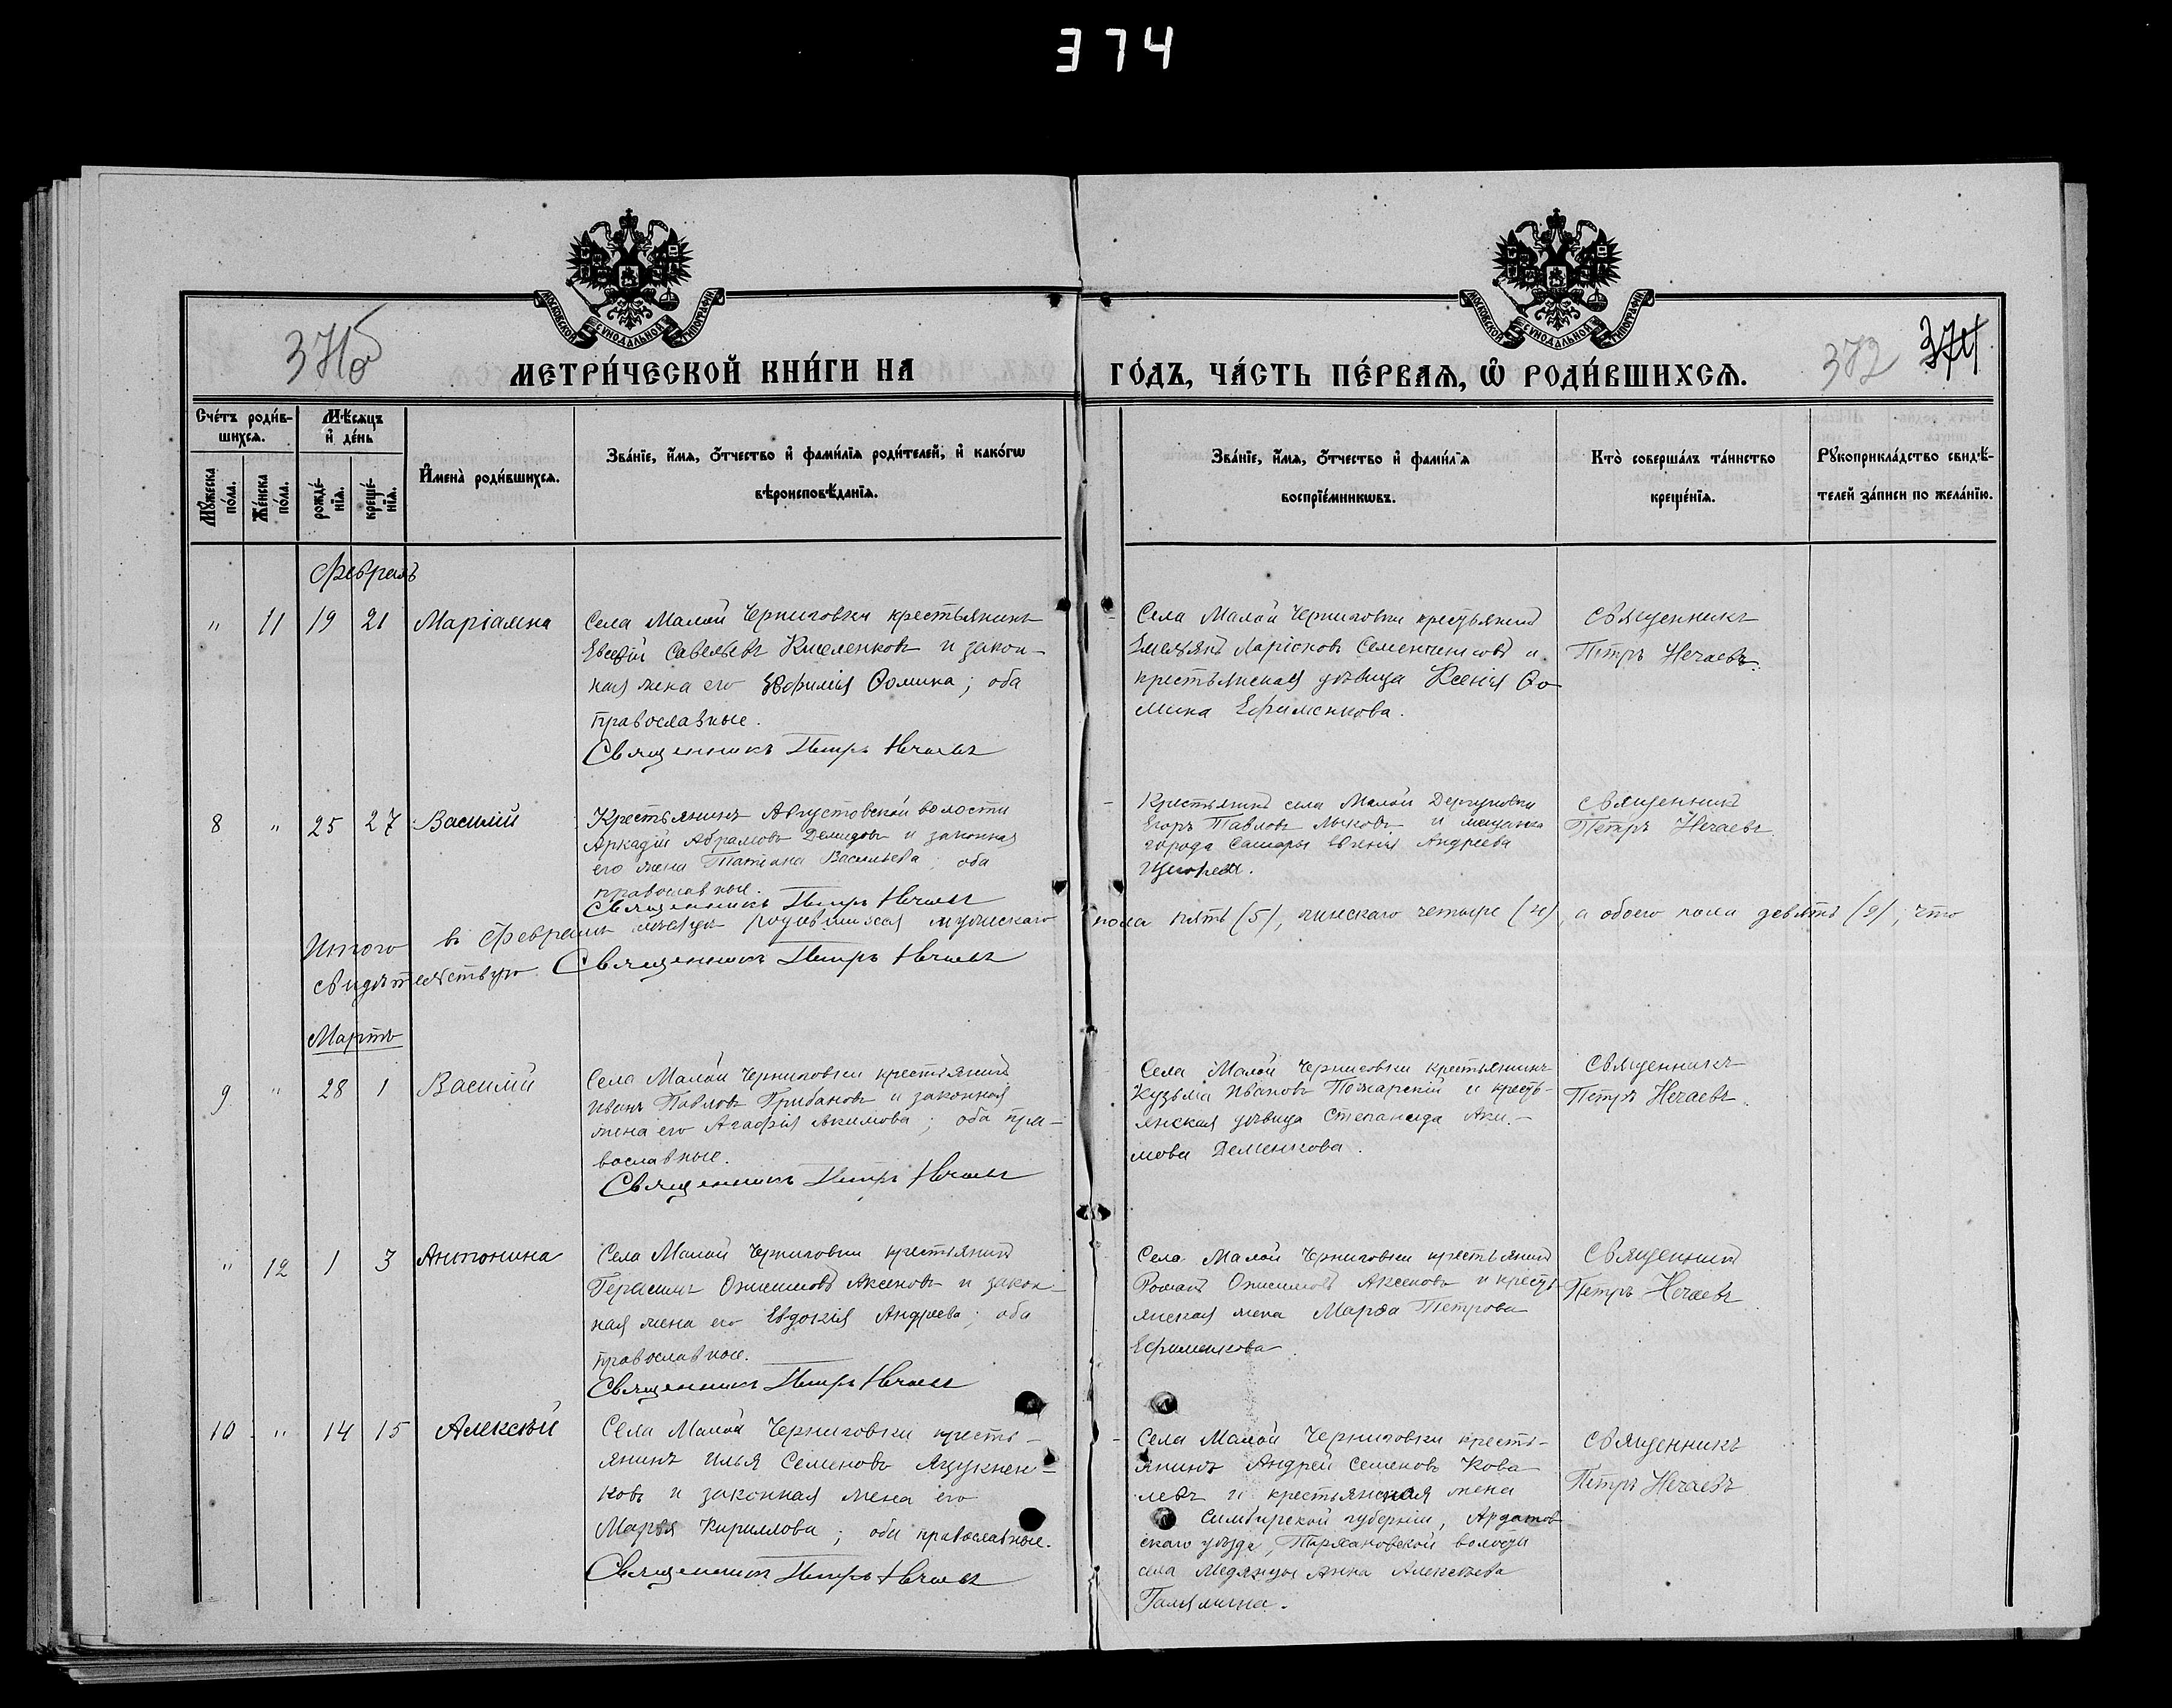 374
МОСКОВСКОЙ СѴНОДАЛЬНОЙ ТИПОГРАФІИ
МОСКОВСКОЙ СѴНОДАЛЬНОЙ ТИПОГРАФІИ
371об
372 374
МЕТРИ́ЧЕСКОЙ КНИ́ГИ НА
ГО́ДЪ, ЧА́СТЬ ПЕ́РВАѦ, Ѡ РОДИ́ВШИХСѦ.
Счéтъ роди́в-
шихсѧ.
Мꙋ́жеска по́ла.
Же́нска по́ла.
Мѣ́сѧцъ
и де́нь
рожде́-
нїѧ.
креще́-
нїѧ.
И҆мена̀ роди́вшихсѧ.
Зва́нїе, и҆́мѧ, ѻ҆́тчество и҆ фами́лїѧ роди́телей, и҆ како́гѡ
вѣроисповѣ́данїѧ.
Зва́нїе, и҆́мѧ, ѻ҆́тчество и҆ фами́лїѧ
воспрїе́мникѡвъ.
Кто̀ соверша́лъ та́инство
креще́нїѧ.
Рꙋкоприкла́дство свидѣ́-
телей за́писи по жела́нїю.
Февраль
" 11 19 21 Маріамна
Села Малой Черниговки крестьянинъ
Евсевій Савельевъ Киселенковъ и закон-
ная жена его Евфимія Ѳомина; оба
православные.
Священникъ Петръ Нечаевъ
Села Малой Черниговки крестьянинъ
Емельянъ Ларіоновъ и
крестьянская дѣвица Ксенія Ѳо
мина Ефименкова.
Священникъ
Петръ Нечаевъ.
8 " 25 27 Василій
Крестьянинъ Августовской волости
Аркадій Абрамовъ Демидовъ и законная
его жена Татіана Васильева; оба
православные.
Священникъ Петръ Нечаевъ
Крестьянинъ села Малой Дергуновки
Егоръ Павловъ Лыковъ и мещанка
города Самары Евгенія Андреева
Священникъ
Петръ Нечаевъ.
Итого въ Февралѣ мѣсяцѣ родившихся мужскаго пола пять (5), женскаго четыре (4), а обоего пола девять (9), что
свидѣтельствую Священникъ Петръ Нечаевъ
Мартъ
9 " 28 1 Василій
Села Малой Черниговки крестьянинъ
Иванъ Павловъ Грибановъ и законная
жена его Агафія Акимова; оба пра-
вославные.
Священникъ Петръ Нечаевъ
Села Малой Черниговки крестьянинъ
Кузьма Ивановъ Пожарскій и кресть-
янская дѣвица Степанида Аки-
мова Деменкова.
Священникъ
Петръ Нечаевъ.
" 12 1 3 Антонина
Села Малой Черниговки крестьянинъ
Герасимъ Онисимовъ Аксеновъ и закон-
ная жена его Евдокія Андреева; оба
православные.
Священникъ Петръ Нечаевъ
Села Малой Черниговки крестьянинъ
Романъ Онисимовъ Аксеновъ и кресть-
янская жена Марѳа Петрова
Ефименкова.
Священникъ
Петръ Нечаевъ
10 " 14 15 Алексѣй
Села Малой Черниговки кресть-
янинъ Илья Семеновъ
и законная жена его
Марѳа Кириллова; оба православные.
Священникъ Петръ Нечаевъ
Села Малой Черниговки кресть-
янинъ Андрей Семеновъ Кова
левъ и крестьянская жена
Симбирской губерніи, Ардатов
скаго уѣзда, Тархановской волости
села Медянцы Анна Алексѣева
Священникъ
Петръ Нечаевъ